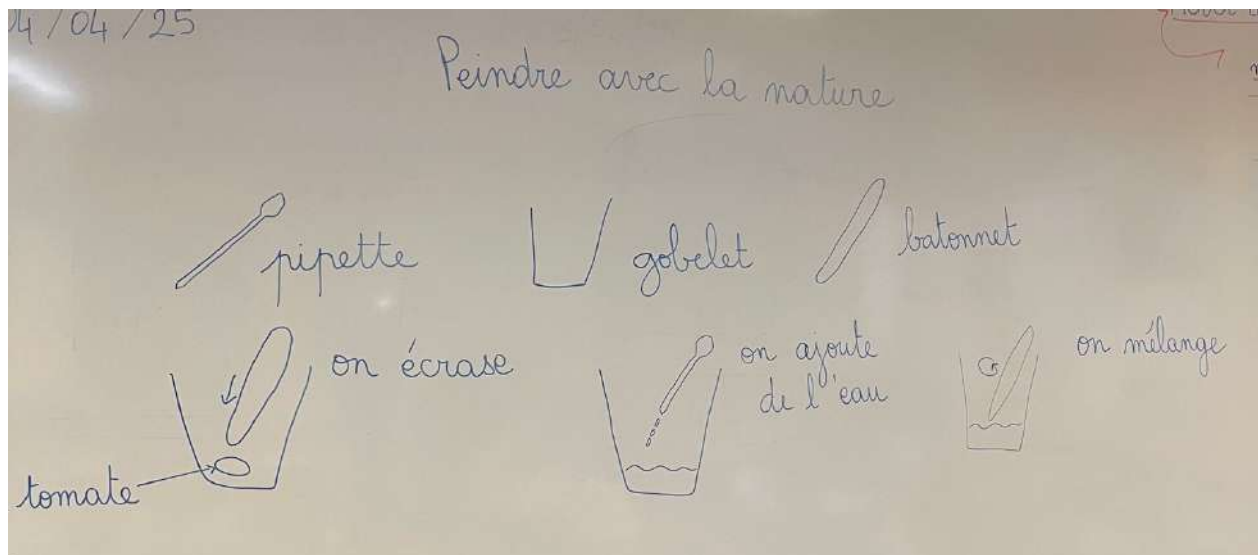 04/04/25
Peindre avec la nature
pipette
gobelet
batonnet
on écrase
on ajoute
de l'eau
on mélange
tomate